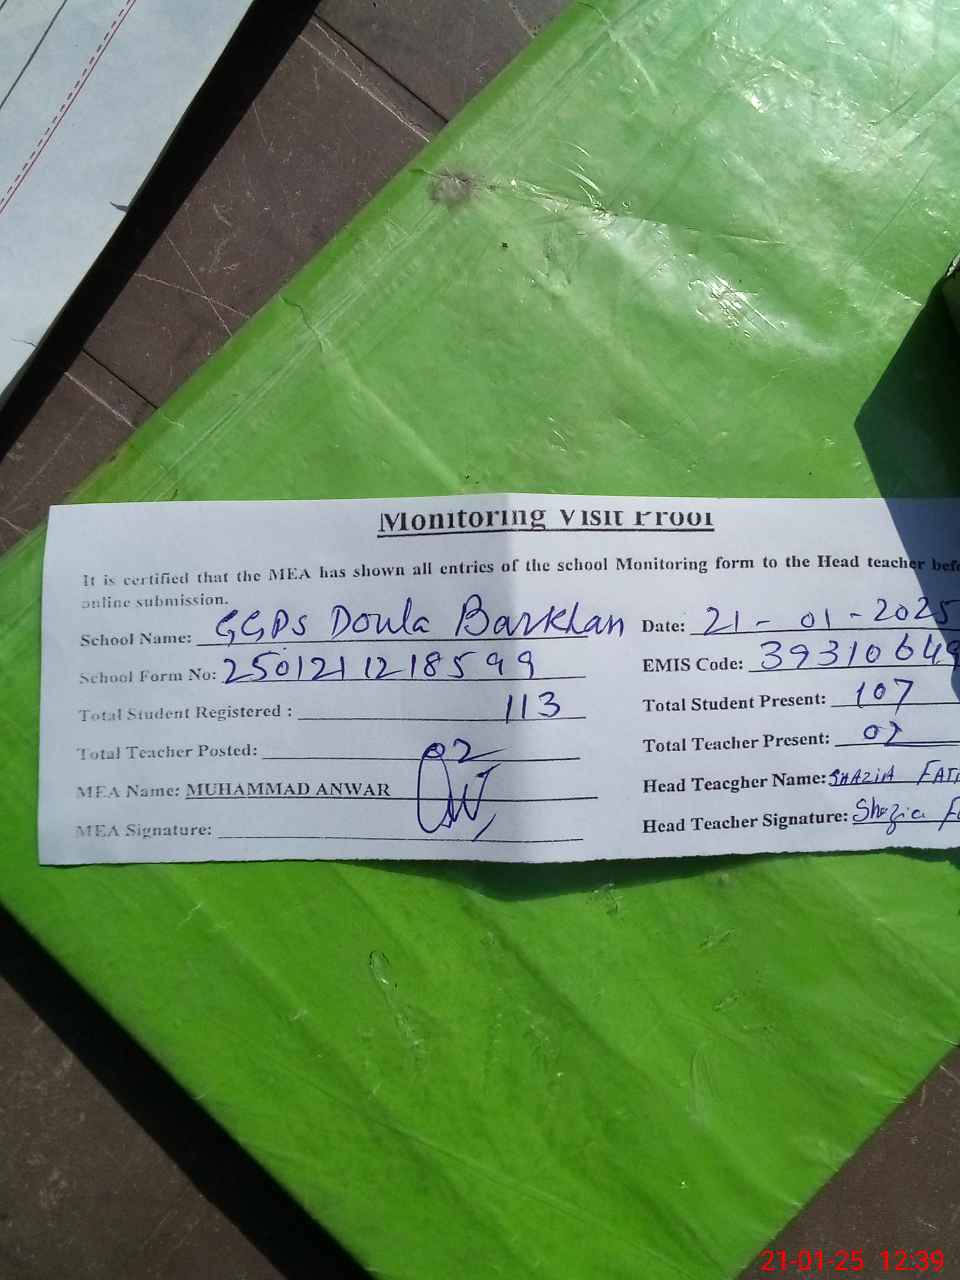 Monitoring Visit Proof
It is certified that the MEA has shown all entries of the school Monitoring form to the Head teacher bef
online submission.
School Name: GGPS Doula Barkhan Date: 21-01-2025
School Form No: 2501211218599 EMIS Code: 39310649
Total Student Registered : 113 Total Student Present: 107
Total Teacher Posted: 02 Total Teacher Present: 02
MEA Name: MUHAMMAD ANWAR Head Teacgher Name: SHAZIA FAT
MEA Signature: Head Teacher Signature: Shazia F
21-01-25 12:39